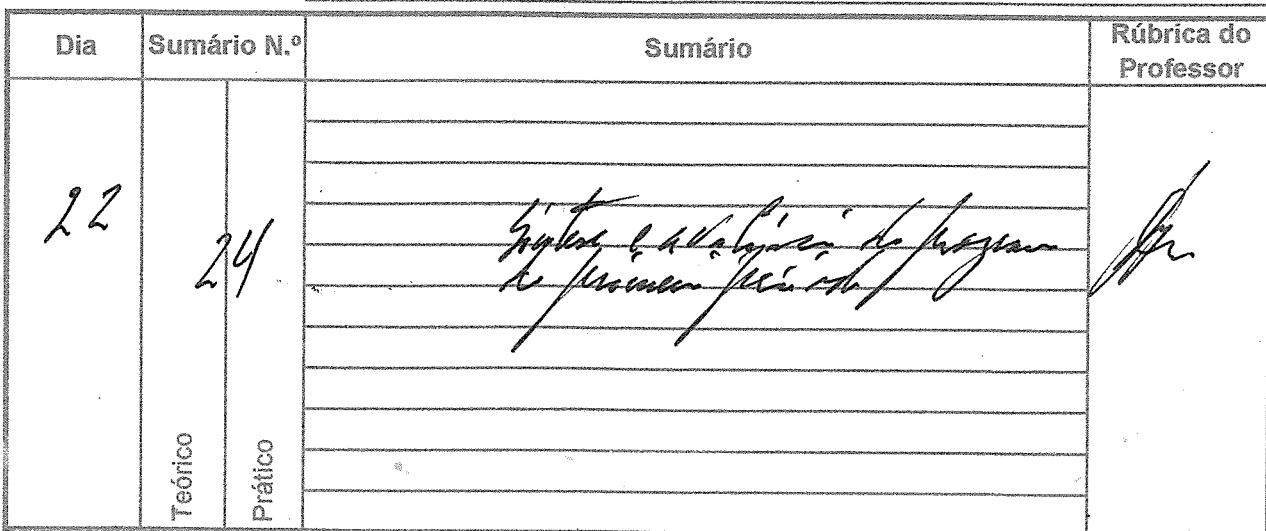 Dia
Sumário N.º
Sumário
Rúbrica do
Professor
22
24
Síntese e avaliação do programa
do primeiro período
Teórico
Prático